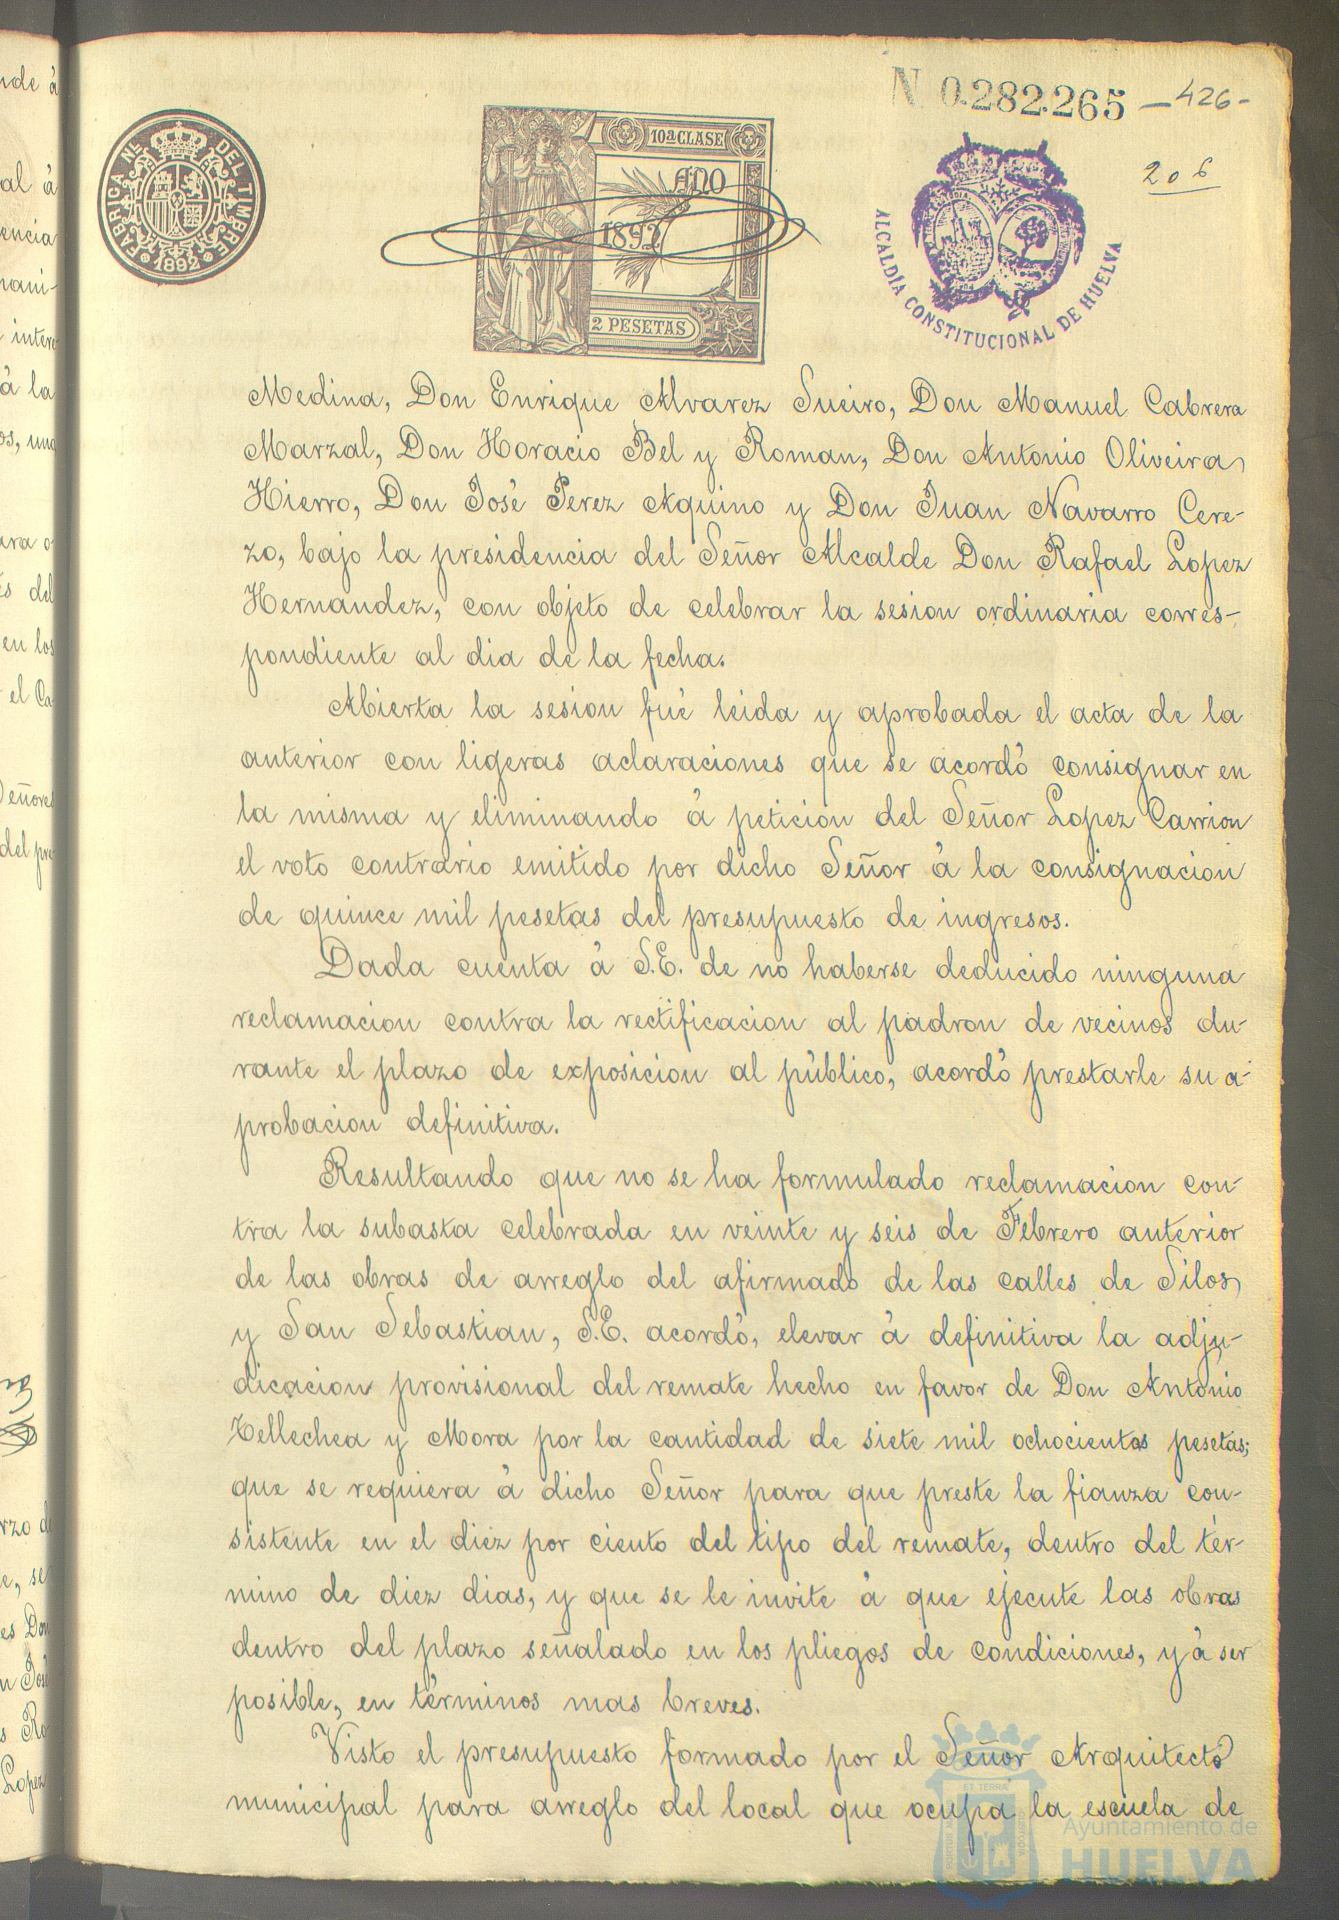 N. 0.282.265 - 426 -
206
FABRICA NAL. DEL TIMBRE
1892
10ª CLASE
AÑO
1892
2 PESETAS
ALCALDÍA CONSTITUCIONAL DE HUELVA
Medina, Don Enrique Alvarez Sueiro, Don Manuel Cabrera
Marzal, Don Horacio Bel y Roman, Don Antonio Oliveira
Hierro, Don José Perez Aquino y Don Juan Navarro Cere-
zo, bajo la presidencia del Señor Alcalde Don Rafael Lopez
Hernandez, con objeto de celebrar la sesion ordinaria corres-
pondiente al dia de la fecha.
Abierta la sesion fué leida y aprobada el acta de la
anterior con ligeras aclaraciones que se acordó consignar en
la misma y eliminando á peticion del Señor Lopez Carrion
el voto contrario emitido por dicho Señor á la consignacion
de quince mil pesetas del presupuesto de ingresos.
Dada cuenta á S.E. de no haberse deducido ninguna
reclamacion contra la rectificacion al padron de vecinos du-
rante el plazo de exposicion al público, acordó prestarle su a-
probacion definitiva.
Resultando que no se ha formulado reclamacion con-
tra la subasta celebrada en veinte y seis de Febrero anterior
de las obras de arreglo del afirmado de las calles de Silos
y San Sebastian, S.E. acordó, elevar á definitiva la adju-
dicacion provisional del remate hecho en favor de Don Antonio
Tellechea y Mora por la cantidad de siete mil ochocientas pesetas;
que se requiera á dicho Señor para que preste la fianza con-
sistente en el diez por ciento del tipo del remate, dentro del tér-
mino de diez dias, y que se le invite á que ejecute las obras
dentro del plazo señalado en los pliegos de condiciones, y á ser
posible, en términos mas breves.
Visto el presupuesto formado por el Señor Arquitecto
municipal para arreglo del local que ocupa la escuela de
Ayuntamiento de
HUELVA